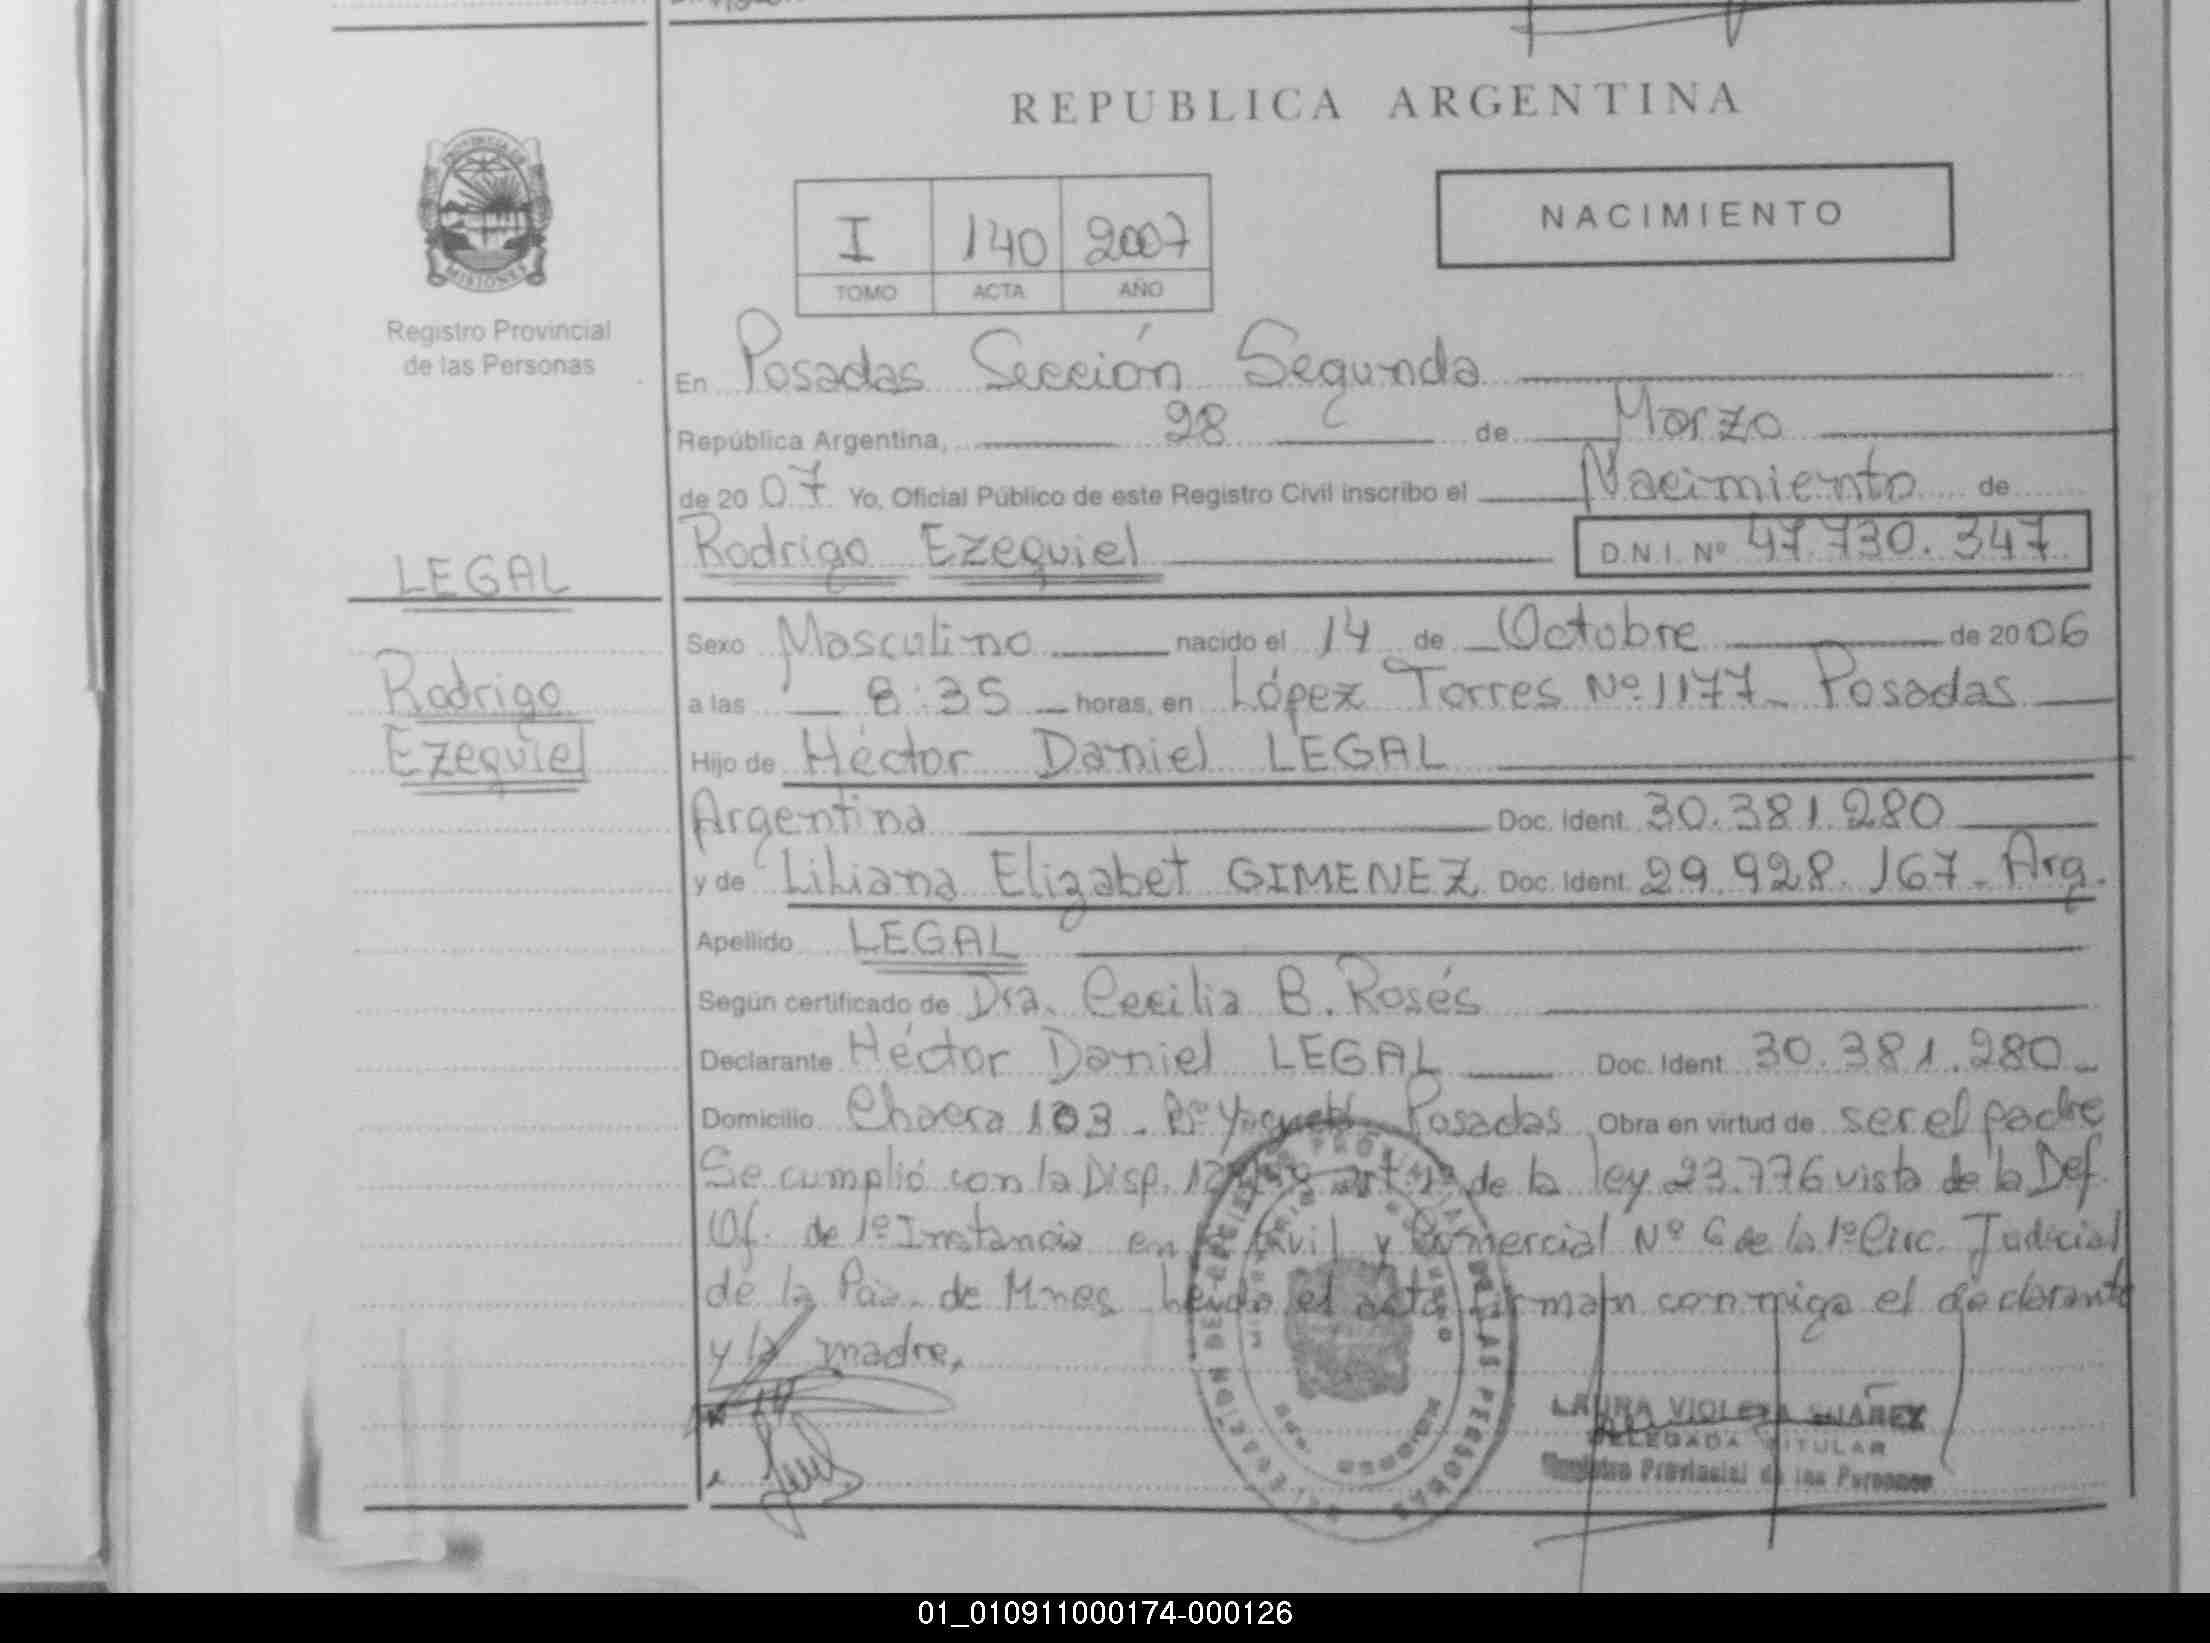 REPUBLICA ARGENTINA
NACIMIENTO
PROVINCIA DE
MISIONES
Registro Provincial
de las Personas
I 140 2007
TOMO ACTA AÑO
En Posadas Sección Segunda
República Argentina, 28 de Marzo
de 2007 Yo, Oficial Público de este Registro Civil inscribo el Nacimiento de
Rodrigo Ezequiel D.N.I. Nº 47.730.347
LEGAL
Rodrigo
Ezequiel
Sexo Masculino nacido el 14 de Octubre de 2006
a las 8:35 horas, en López Torres Nº 1177 - Posadas
Hijo de Héctor Daniel LEGAL
Argentina Doc. Ident. 30.381.280
y de Liliana Elizabet GIMENEZ Doc. Ident. 29.928.167 - Arg.
Apellido LEGAL
Según certificado de Dra. Cecilia B. Rosés
Declarante Héctor Daniel LEGAL Doc. Ident. 30.381.280 -
Domicilio Chacra 103 - Posadas Obra en virtud de ser el padre
Se cumplió con la Disp. art 1º de la ley 23.776 vista de la Def.
Of. de 1º Instancia en Civil y Comercial Nº 6 de la 1º Circ. Judicial
de la Pcia. de Mnes. Leida el acta firman conmigo el declarante
y la madre.
LAURA VIOLETA SUAREZ
DELEGADA TITULAR
Registro Provincial de las Personas
01_010911000174-000126